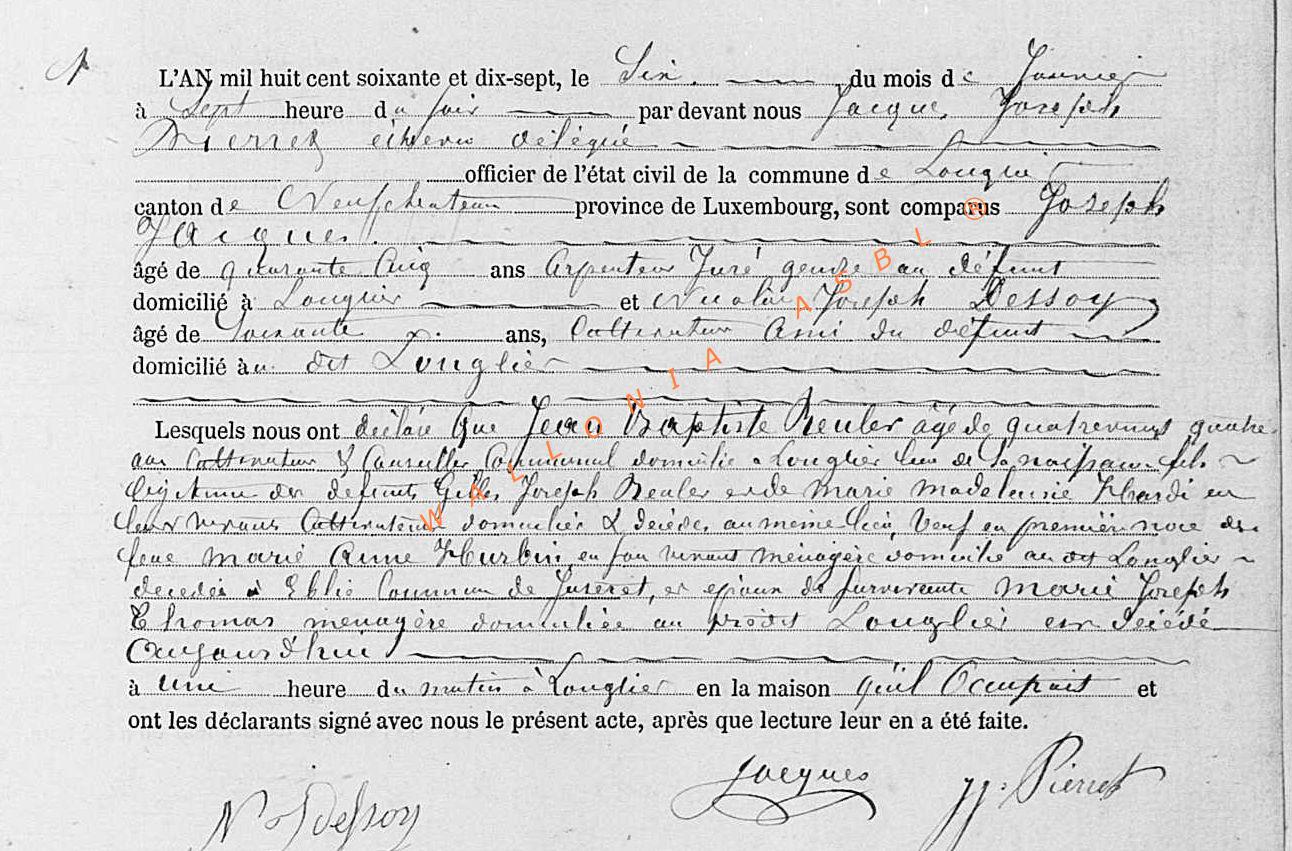 1
L'AN mil huit cent soixante et dix-sept, le Six du mois de Janvier
à Sept heure du soir par devant nous Jacque Joseph
Pierret echevin délégué
officier de l'état civil de la commune de Longlier
canton de Neufchateau province de Luxembourg, sont comparus Joseph
Jacques
âgé de quarante Cinq ans Arpenteur Juré gendre au défunt
domicilié à Longlier et Nicolas Joseph Dessoy
âgé de Soixante ans, Cultivateur Ami du défunt
domicilié au dit Longlier
Lesquels nous ont déclaré Que Jean Baptiste Reuler âgé de quatrevingt quatre
ans Cultivateur & Conseiller Communal domicilié a Longlier lieu de Sa naissance fils
légitime des defunts Gilles Joseph Reuler et de Marie Madeleine en
leurs vivants Cultivateurs domiciliés & décédés au même lieu, Veuf en premiere noce de
feue Marie Anne Hurbin en son vivant ménagère domicilié au dit Longlier
decedée à Eblie Commune de Juseret, et epoux de survivante Marie Joseph
Thomas ménagère domiciliée au prédit Longlier est décédé
Aujourd'hui
à une heure du matin à Longlier en la maison qu'il Occupait et
ont les déclarants signé avec nous le présent acte, après que lecture leur en a été faite.
N J Dessoy Jacques JJ. Pierret
WALLONIA ASBL ®